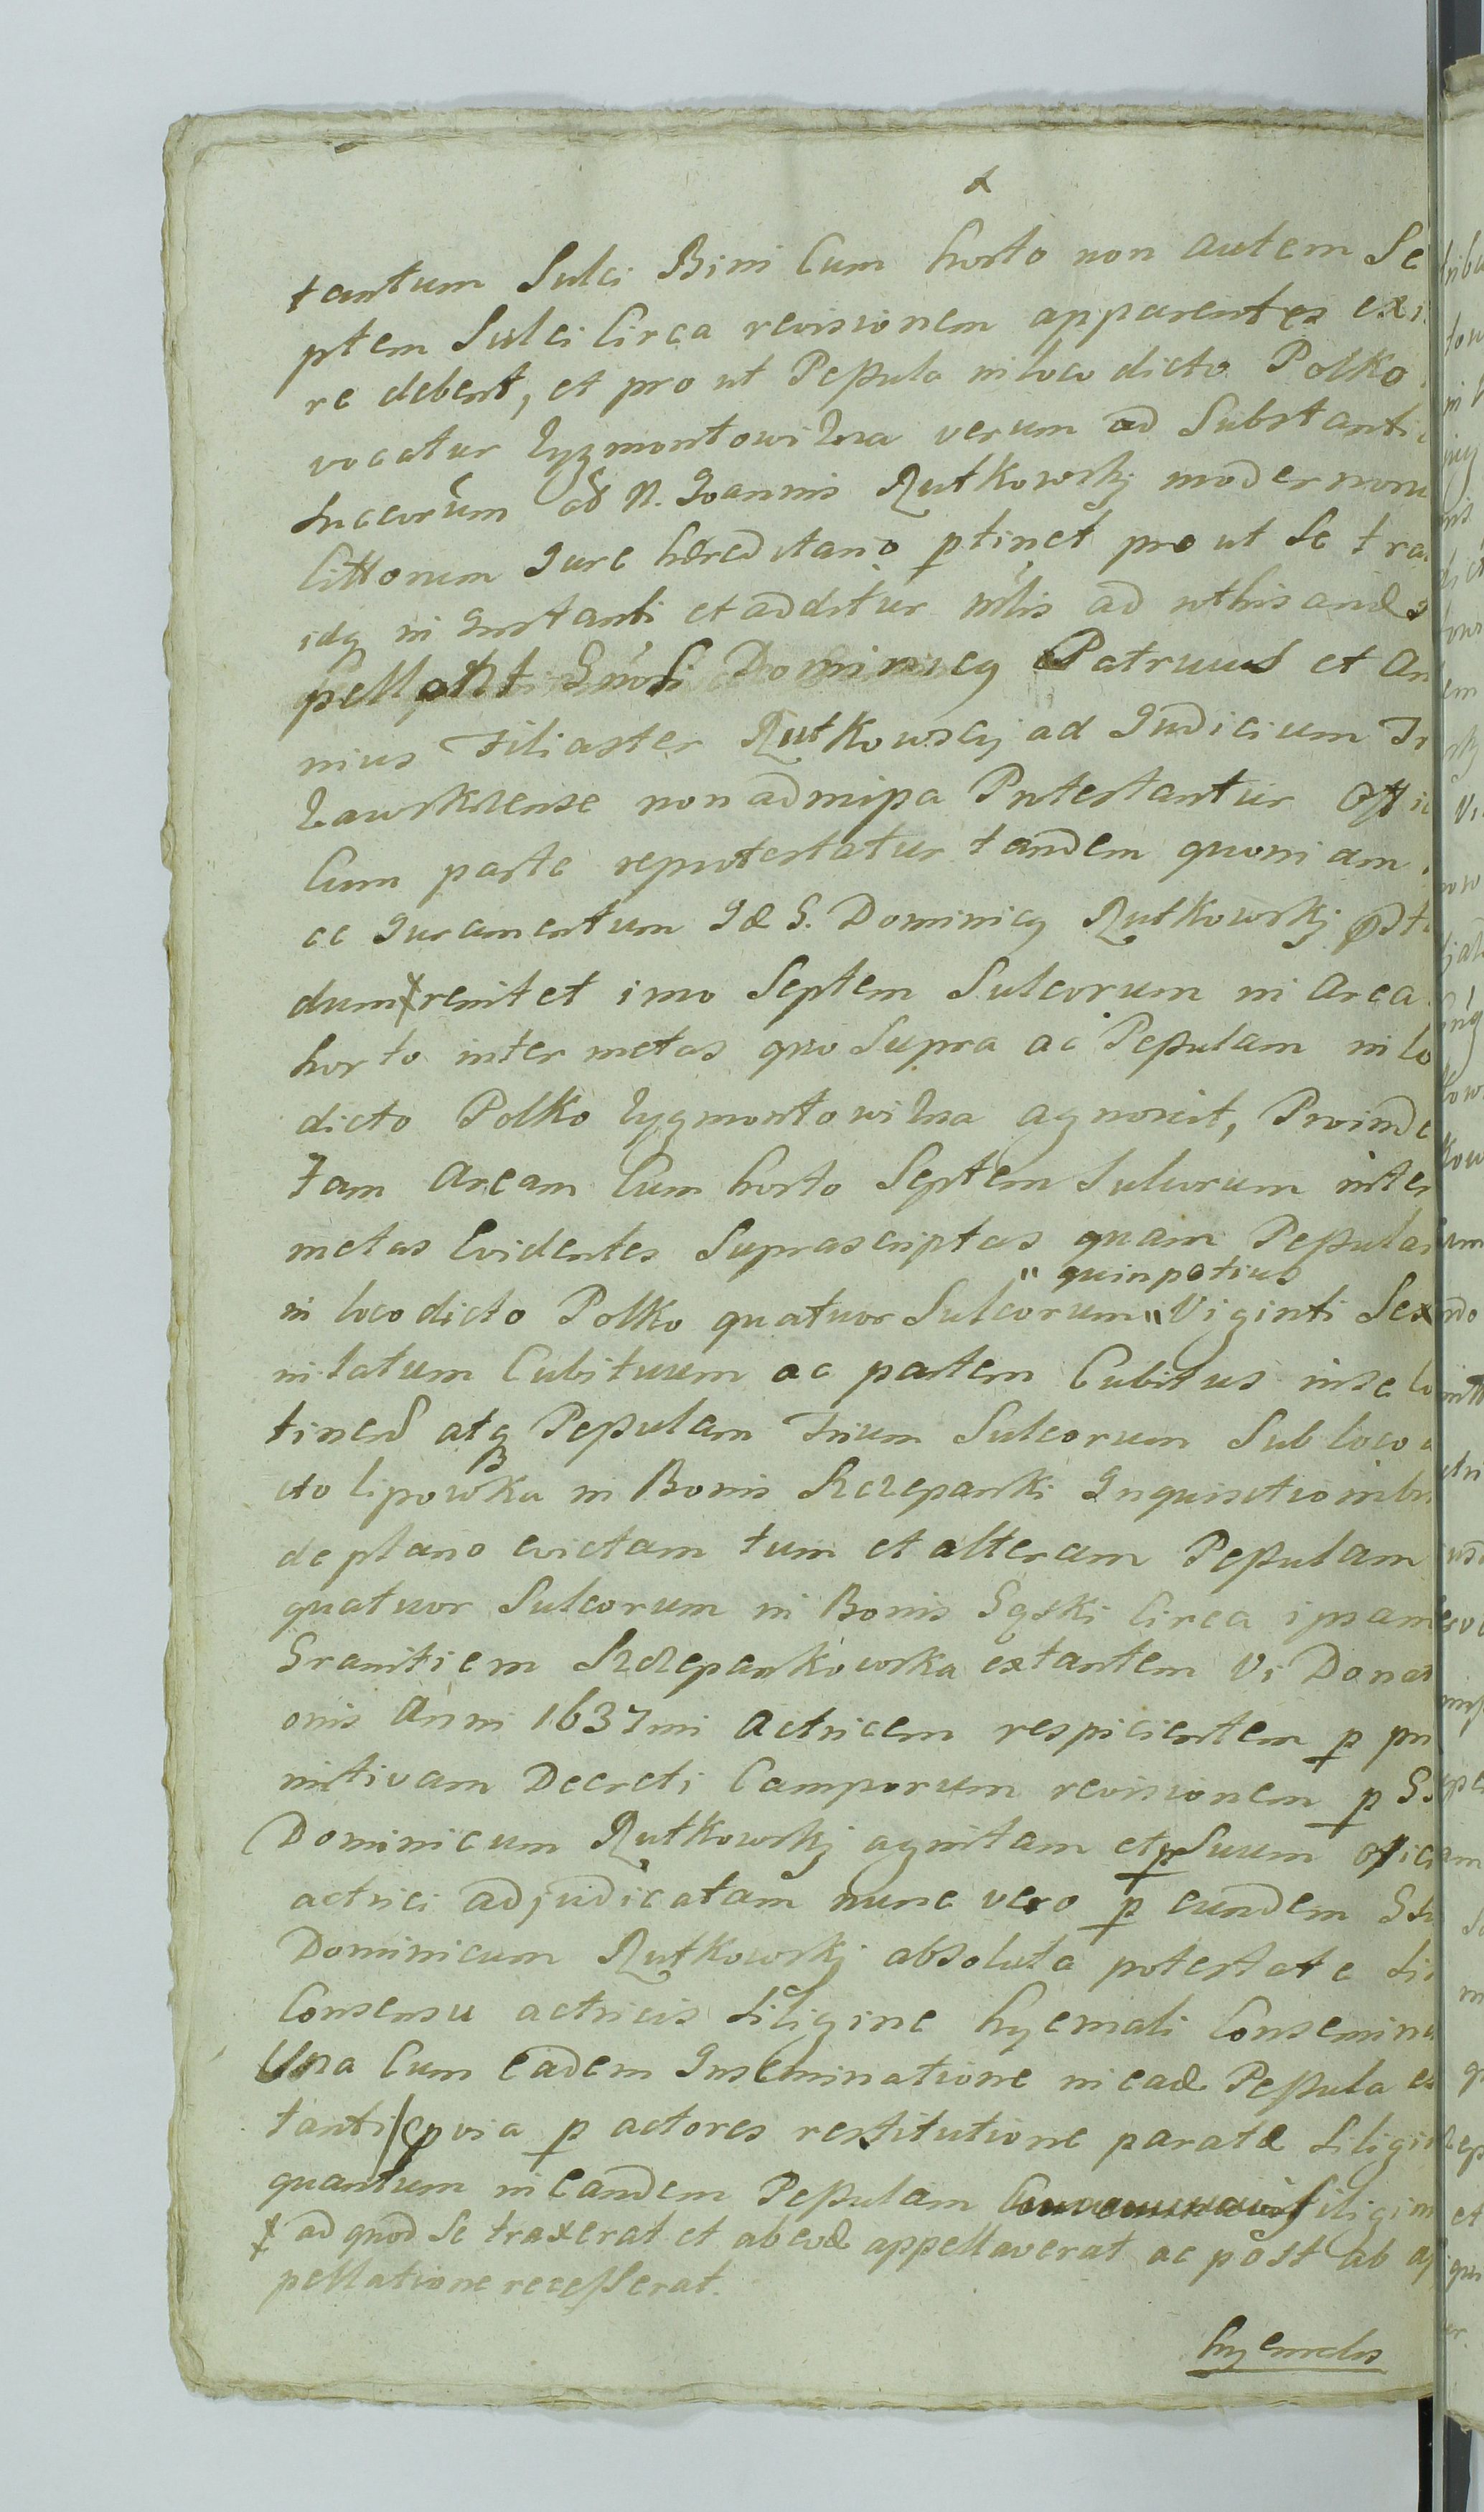 tantum Sulci Bini Cum horto non autem Se
ptem Sulci Circa revisionem apparentes exi
re debent, et pro ut Pessula in loco dicto Polko
vocatur Zygmontowizna verum ad Substanti
Succorum ad N. Joannis Rutkowskj modernoru
Cittorum Jure hæreditario ptinet pro ut Se tra
idq in Instanti et additur illis ad
pellant Gnosi Dominicq Patruus et An
nius Filiaster Rutkowscj ad Judicium Tr
Zawskrense non admissa Pntestantur Offi
Cum parte reprotestatur tandem quoniam
ac Juramentum Idē G. Dominicq Rutkowskj
dum ҂ renitet imo Septem Sulcorum in Area
horto inter metas quo Supra ac Pessulam in lo
dicto Polko Zygmontowizna agnoscit, Proinde
Tam Aream Cum horto Septem Sulcorum inter
metas Evidentes Suprascriptas quam Pessulam
" quinpotius
in loco dicto Polko quatuor Sulcorum " Viginti Sex
in latum Cubituum ac partem Cubitus in se Co
tinen atq Pessulam Trium Sulcorum Sub loco
cto Lipowka in Bonis Szczepanki Inquisitionibu
de plano evictam tum et alteram Pessulam
quatuor Sulcorum in Bonis Gąski Circa ipsam
Granitiem Szczepankowska extantem Vi Donati
onis Anni 1637mi Actricem respicientem p pri
mitivam Decreti Camporum revisionem p
Dominicum Rutkowskj agnitam et p Suum offici
actrici adjudicatam nunc vero p eundem
Dominicum Rutkowskj absoluta potestate Si
Consensu actricis Siligine hyemali Consemina
Una Cum eadem Inseminatione in eadē Pessula ex
tanti pvia p actores restitutione paratæ Siligi
quantum in Eandem Pessulam Siligin
҂ ad quod Se traxerat et ab eodē appellaverat ac post ab ap
pellatione recesserat.
hyemalis